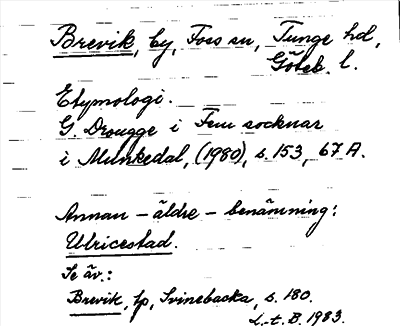 Brevik, by, Foss sn, Tunge hd,
Göteb. l.
Etymologi.
G. Drougge i Fem socknar
i Munkedal, (1980), s. 153, 67 A.
Annan - äldre - benämning:
Ulricestad.
Se äv.:
Brevik, lp, Svinebacka, s. 180.
L-t. B. 1983.